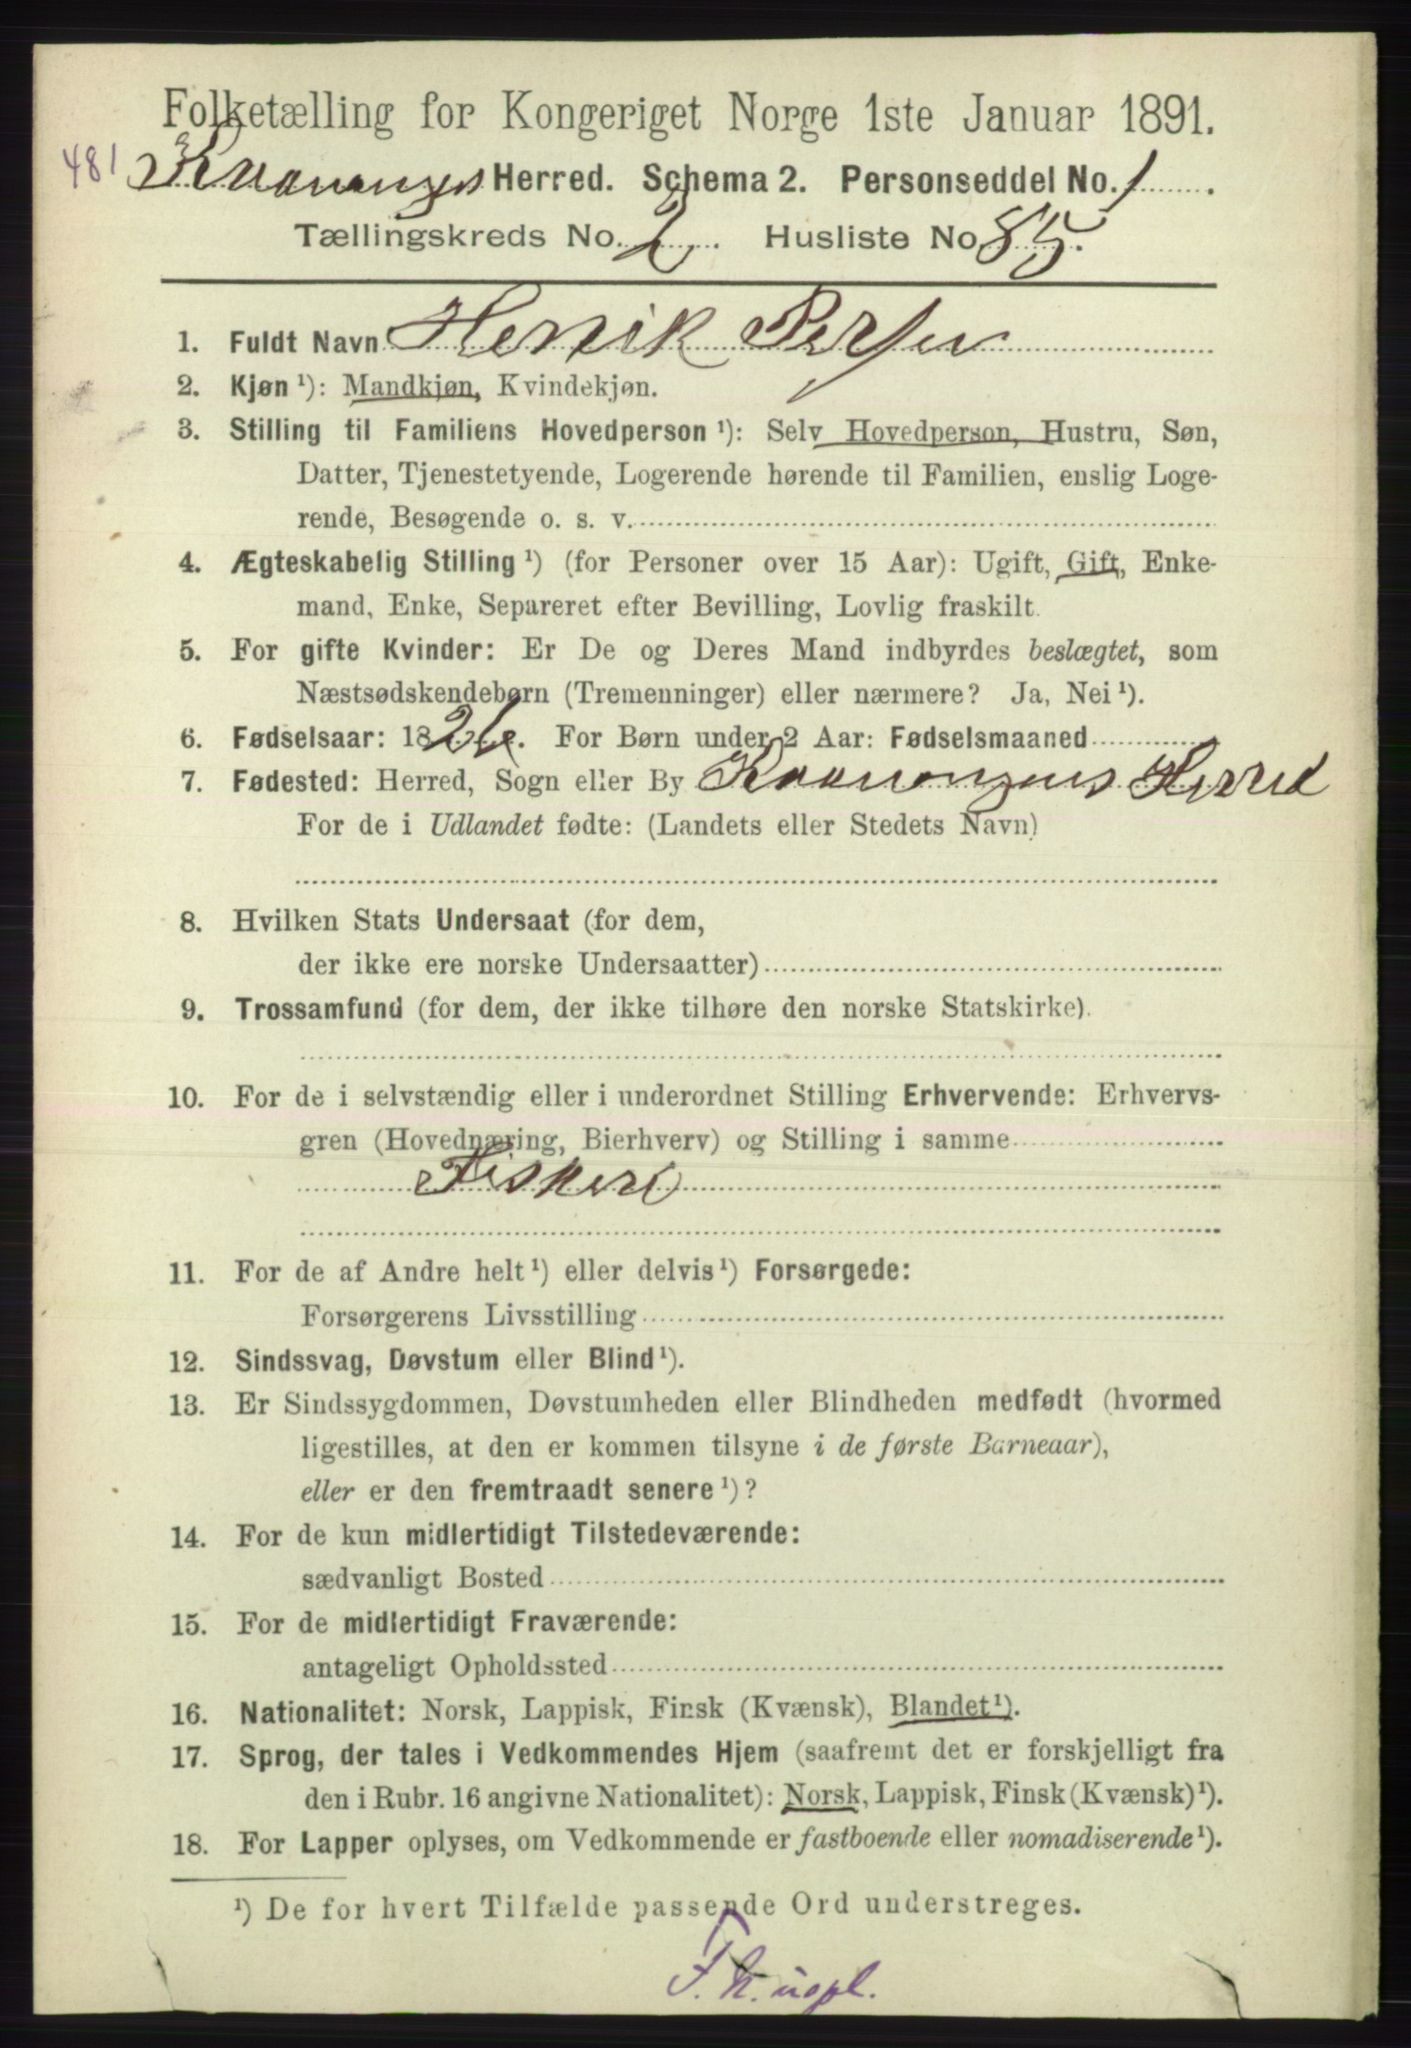 Folketælling for Kongeriget Norge 1ste Januar 1891.
481 Kvænangs Herred. Schema 2. Personseddel No. 1.
Tællingskreds No. 2. Husliste No. 85.
1. Fuldt Navn Henrik Persen
2. Kjøn ¹): Mandkjøn, Kvindekjøn.
3. Stilling til Familiens Hovedperson ¹): Selv Hovedperson, Hustru, Søn,
Datter, Tjenestetyende, Logerende hørende til Familien, enslig Loge-
rende, Besøgende o. s. v.
4. Ægteskabelig Stilling ¹) (for Personer over 15 Aar): Ugift, Gift, Enke-
mand, Enke, Separeret efter Bevilling, Lovlig fraskilt.
5. For gifte Kvinder: Er De og Deres Mand indbyrdes beslægtet, som
Næstsødskendebørn (Tremenninger) eller nærmere? Ja, Nei ¹).
6. Fødselsaar: 1826. For Børn under 2 Aar: Fødselsmaaned
7. Fødested: Herred, Sogn eller By Kvænangens Herred
For de i Udlandet fødte: (Landets eller Stedets Navn)
8. Hvilken Stats Undersaat (for dem,
der ikke ere norske Undersaatter)
9. Trossamfund (for dem, der ikke tilhøre den norske Statskirke).
10. For de i selvstændig eller i underordnet Stilling Erhvervende: Erhvervs-
gren (Hovednæring, Bierhverv) og Stilling i samme
Fiskeri
11. For de af Andre helt ¹) eller delvis ¹) Forsørgede:
Forsørgerens Livsstilling
12. Sindssvag, Døvstum eller Blind ¹).
13. Er Sindssygdommen, Døvstumheden eller Blindheden medfødt (hvormed
ligestilles, at den er kommen tilsyne i de første Barneaar),
eller er den fremtraadt senere ¹)?
14. For de kun midlertidigt Tilstedeværende:
sædvanligt Bosted
15. For de midlertidigt Fraværende:
antageligt Opholdssted
16. Nationalitet: Norsk, Lappisk, Finsk (Kvænsk), Blandet ¹).
17. Sprog, der tales i Vedkommendes Hjem (saafremt det er forskjelligt fra
den i Rubr. 16 angivne Nationalitet): Norsk, Lappisk, Finsk (Kvænsk) ¹).
18. For Lapper oplyses, om Vedkommende er fastboende eller nomadiserende ¹).
¹) De for hvert Tilfælde passende Ord understreges.